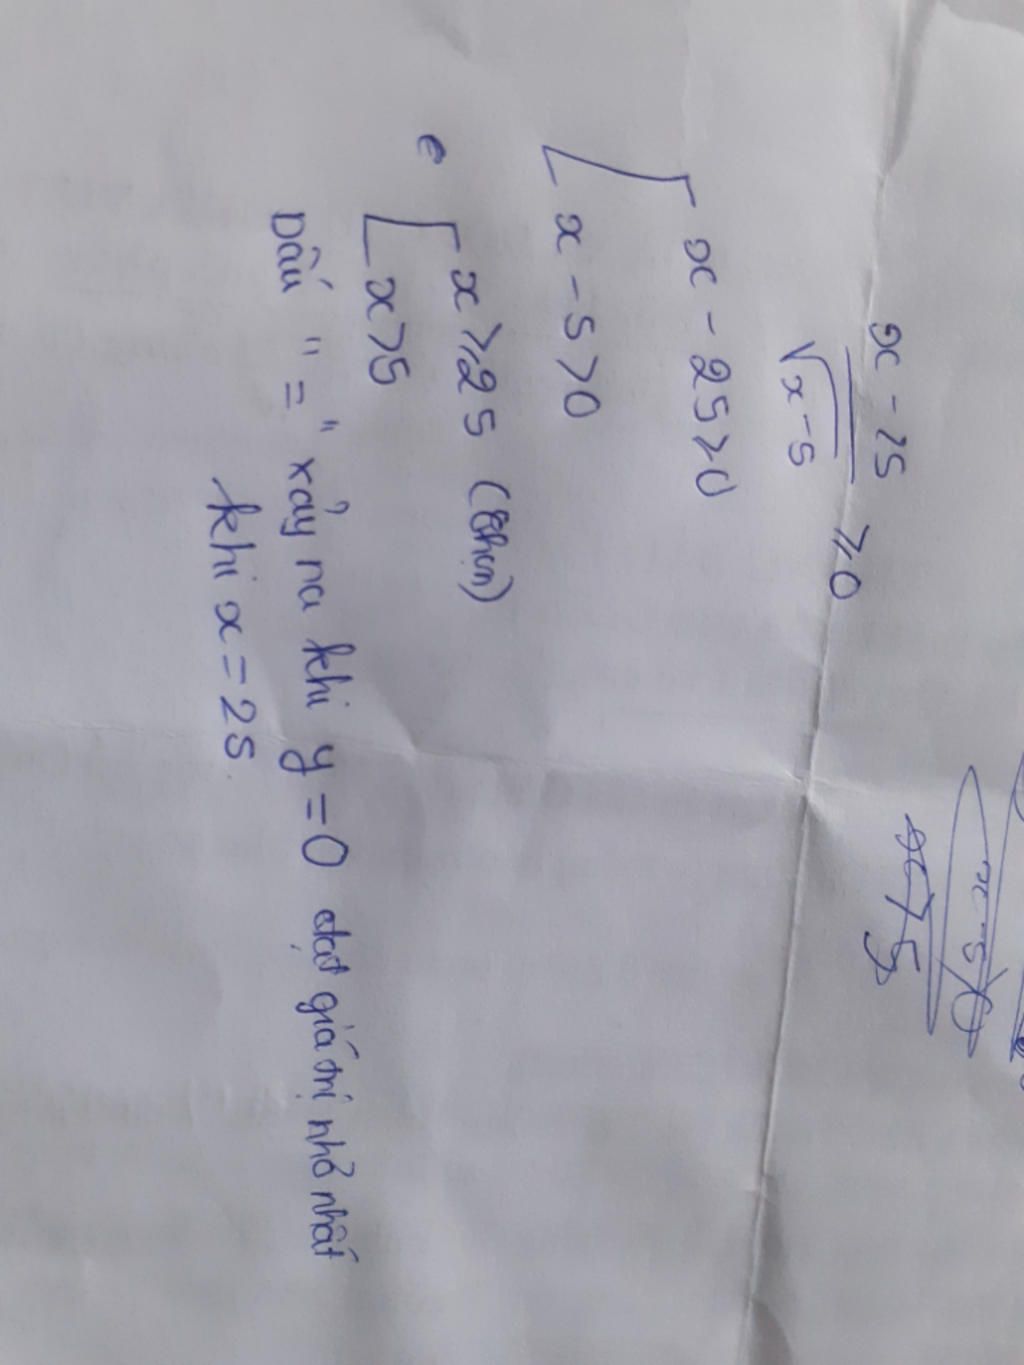 x - 25
√x-5 ≥ 0
x - 25 ≥ 0
x - 5 > 0
x ≥ 25 (nhận)
x > 5
Dấu "=" xảy ra khi y = 0 đạt giá trị nhỏ nhất
khi x = 25